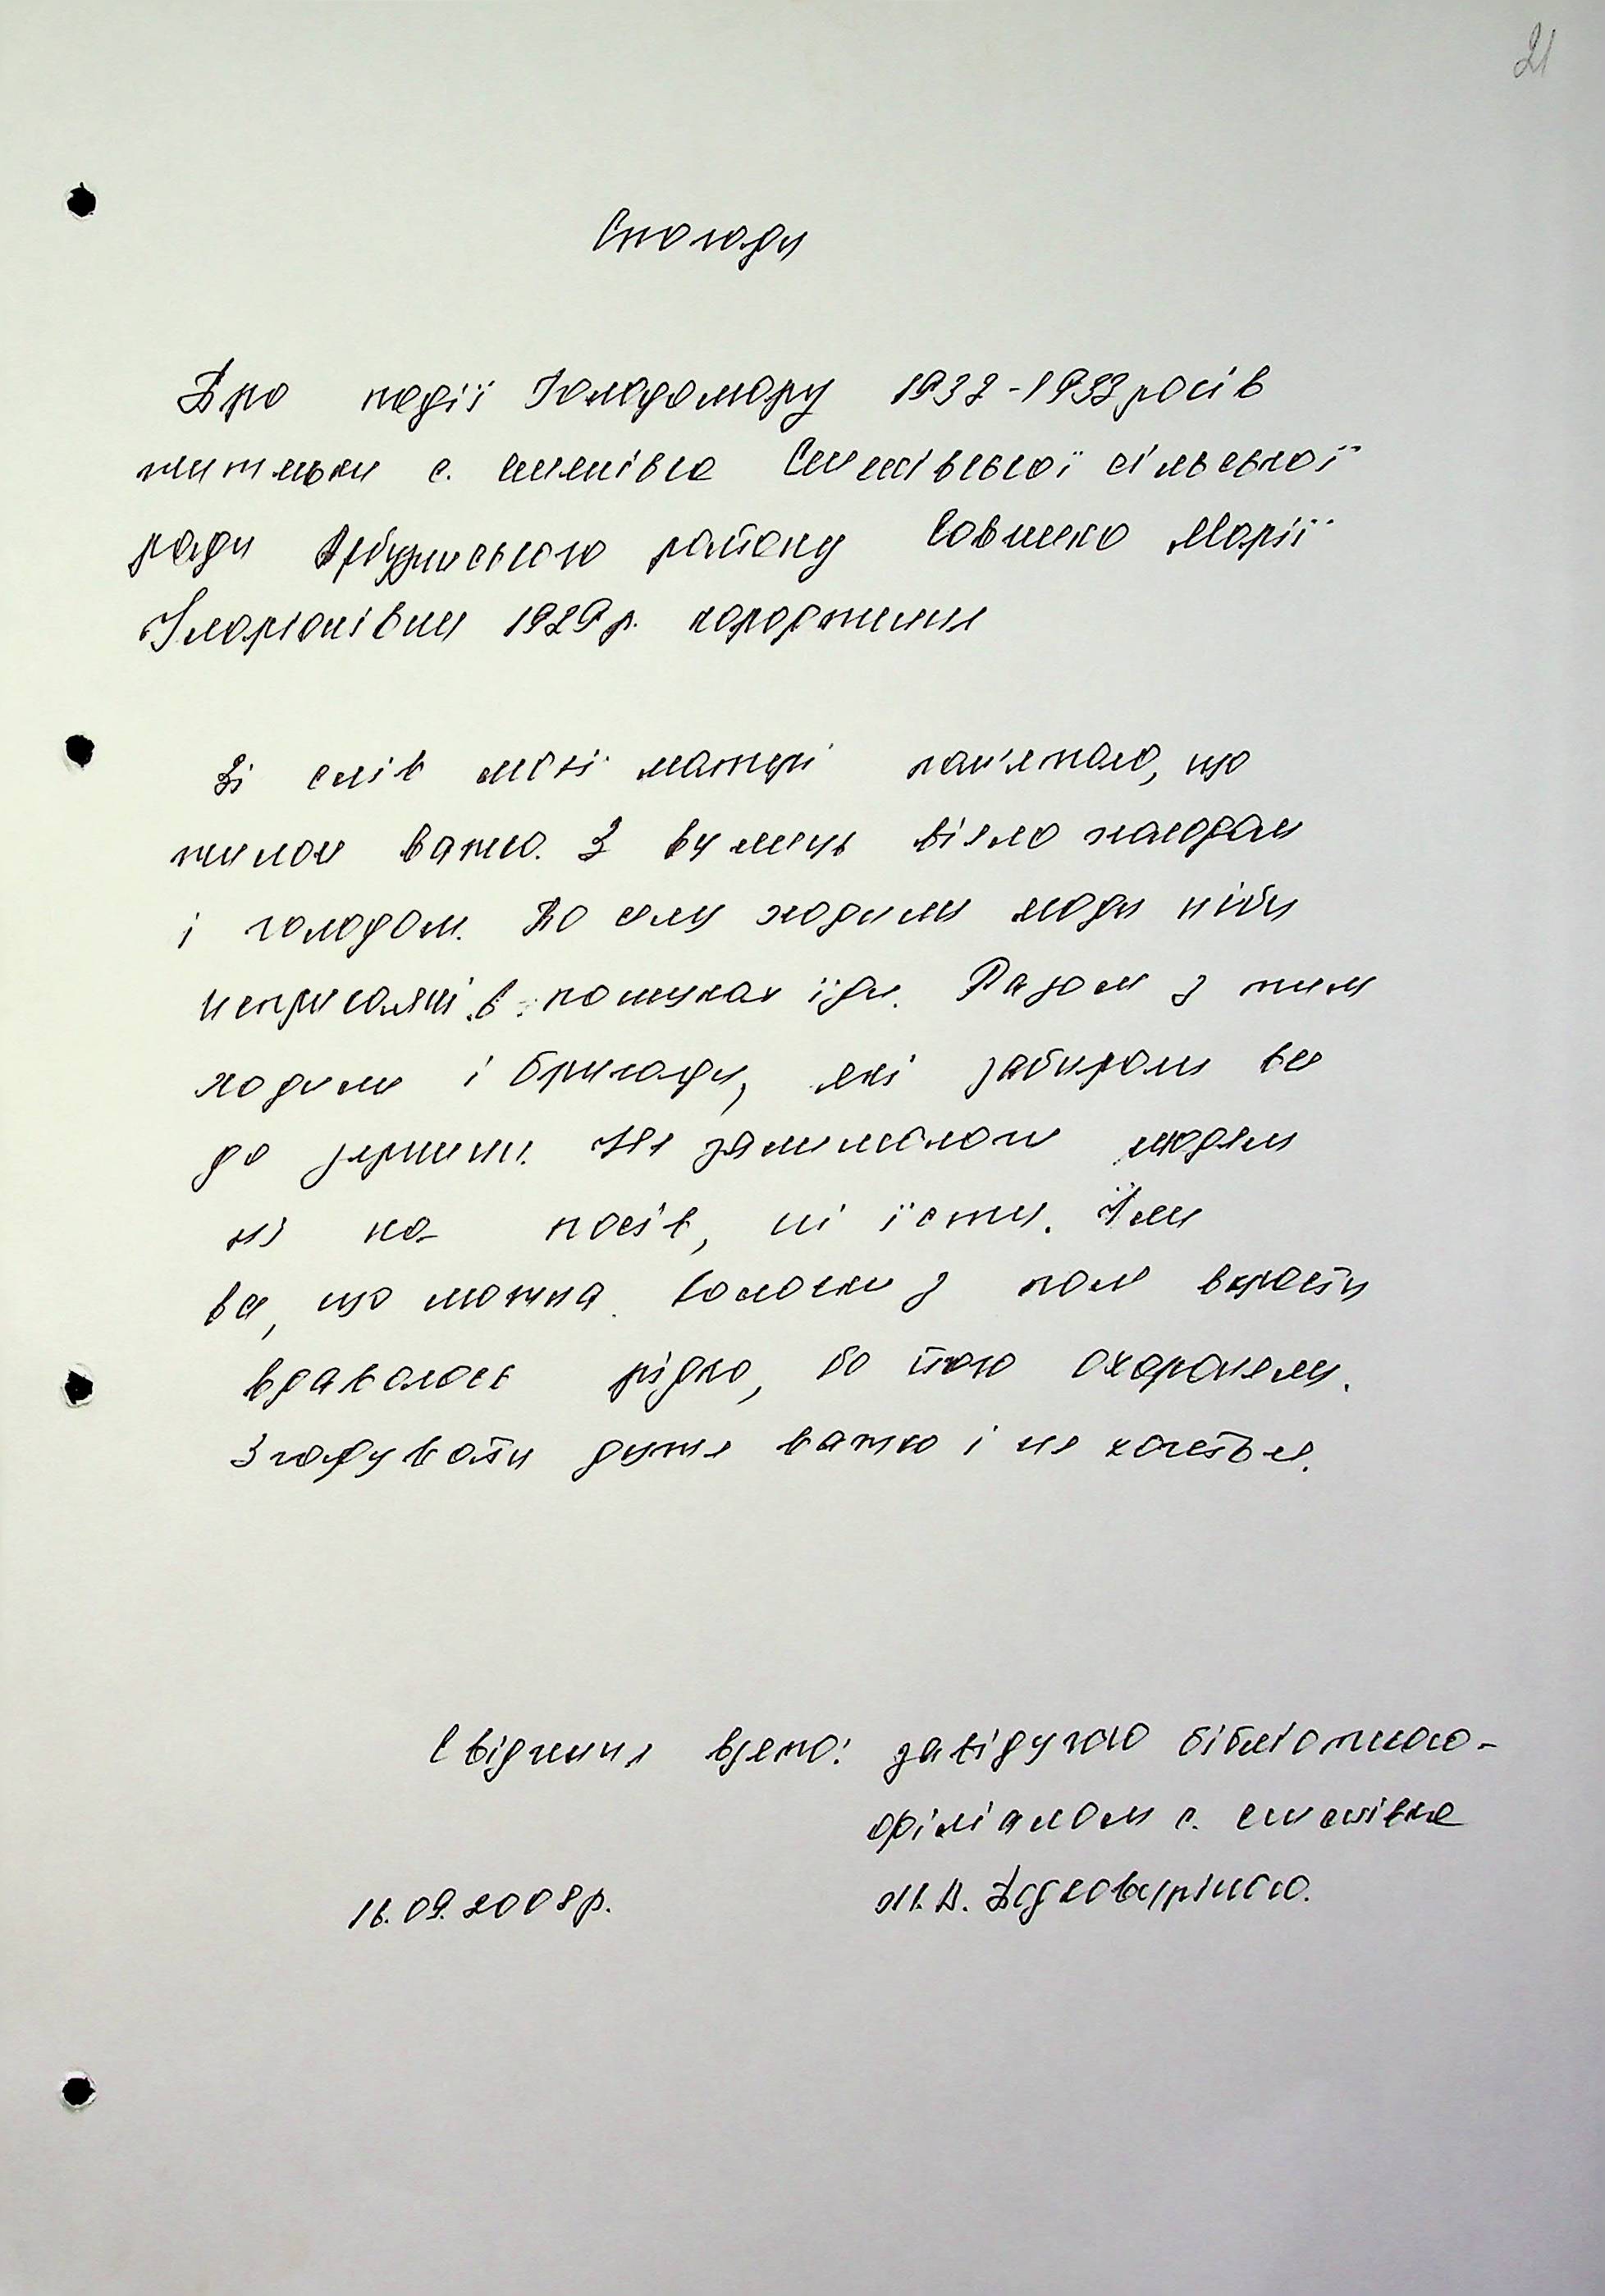 21
Спогади
Про події Голодомору 1932-1933 років
жительки с. Семенівка Семенівської сільської
ради Арбузинського району Савченко Марії
Іларіонівни 1929 р. народження
Зі слів моєї матері пам'ятаю, що
жилося важко. З вулиць віяло холодом
і голодом. По селу ходили люди ніби
неприкаяні в пошуках їди. Разом з тим
ходили і бригади, які забирали все
до зернини. Не залишалося людям
ні на посів, ні їсти. Їли
все, що можна. Колоски з поля вкрасти
вдавалося рідко, бо його охороняли.
Згадувати дуже важко і не хочеться.
Свідчення взято: завідуючою бібліотекою-
філіалом с. Семенівка
16.09.2008р.